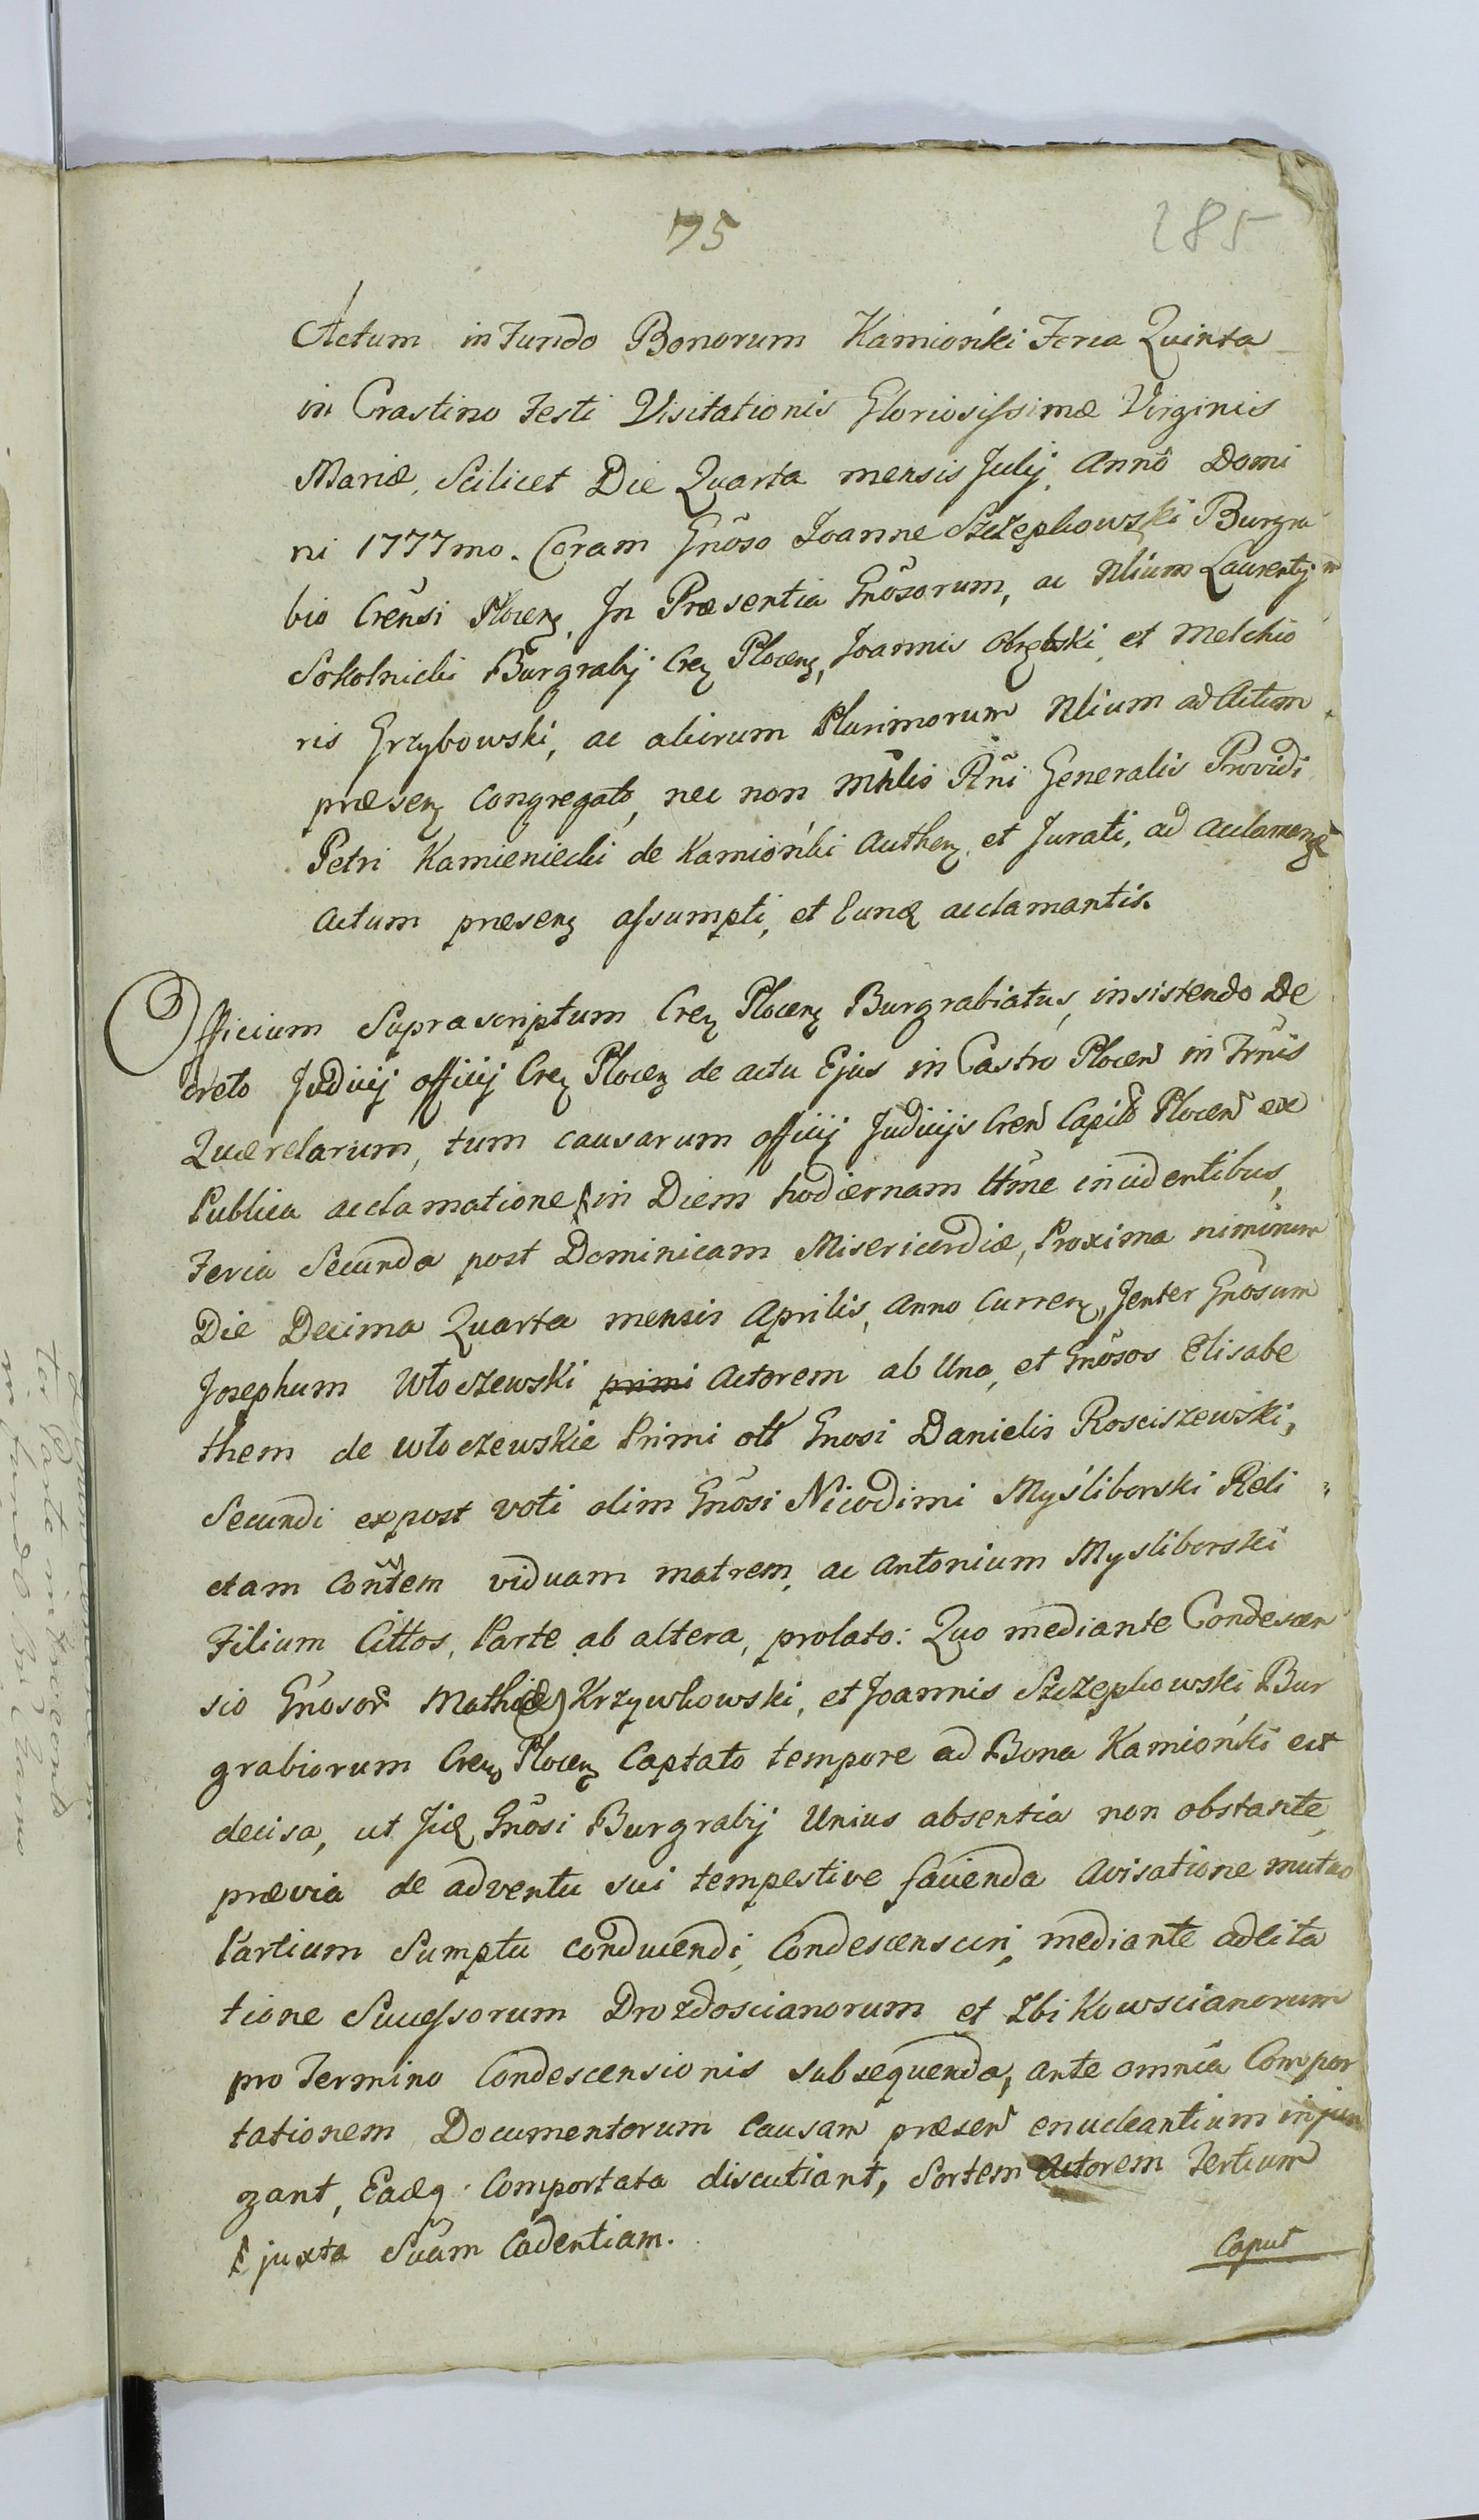 75
285
Actum in Fundo Bonorum Kamiońki Feria Quinta
in Crastino Festi Visitationis Gloriosissimæ Virginis
Mariæ, Scilicet Die Quarta mensis Julij, Annô Domi
ni 1777mo. Coram Gnôso Joanne Szczepkowski Burgra
bio Crensi Plocenȝ, In Præsentia Gnôsorum, ac Nlium Laurentij
Sokolnicki Burgrabij Crenȝ Plocenȝ, Joannis Obrębski, et Melchio
ris Grzybowski, ac aliorum Plurimorum Nlium ad Actum
præsenȝ Congregato, nec non Mnlis Rñi Generalis Providi
Petri Kamieniecki de Kamiońki Authenȝ, et Jurati, ad acclamanȝ
Actum præsenȝ assumpti, et Eunȝ acclamantis.
Officium Suprascriptum Crenȝ Plocenȝ Burgrabiatus, insistendo De
creto Judicij officij Crenȝ Plocenȝ de actu Ejus in Castro Plocen̄ in Trñis
Querelarum, tum causarum officij Judicijs Cren̄ Capił Plocen̄ ex
Publica acclamatione, in Diem hodiernam ttme incidentibus,
Feria Secunda post Dominicam Misericordiæ, Proxima nimirum
Die Decima Quarta mensis Aprilis, Anno Currenȝ, Jenter Gnôsum
Josephum Włoczewski primi Actorem ab Una, et Gnôsos Elisabe
them de Włoczewskie Primi olt Gnosi Danielis Rosciszewski,
Secundi expost voti olim Gnôsi Nicodimi Myśliborski Reli
ctam Contem viduam matrem, ac Antonium Mysliborski
Filium Cittos, Parte ab altera, prolato: Quo mediante Condescen
sio Gnosor̄ Mathiæ Krzywkowski, et Joannis Szczepkowski Bur
grabiorum Crenȝ Plocenȝ Captato tempore ad Bona Kamiońki est
decisa, ut Jiȝ Gnôsi Burgrabij Unius absentia non obstante,
prævia de adventu sui tempestive facienda avisatione mutuo
Partium Sumptu conducendi, Condescensuri, mediante adcita
tione Successorum Drozdoscianorum et Zbikowscianorum
pro Termino Condescensionis subsequenda, ante omnia Compor
tationem Documentorum Causam præsen̄ enucleantium injun
gant, Eaqȝ Comportata discutiant, Sortem Actorem Tertium
juxta Suam Cadentiam.
Caput